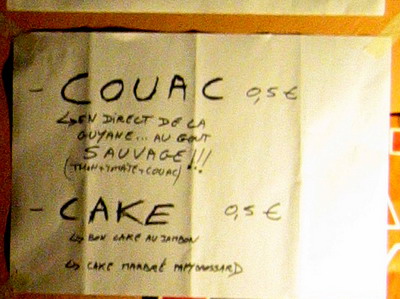 - COUAC 0,5 €
↳ EN DIRECT DE LA
GUYANE... AU GOUT
SAUVAGE!!!
(THON+TOMATE+COUAC)
- CAKE 0,5 €
↳ BON CAKE AU JAMBON
↳ CAKE MARBRÉ